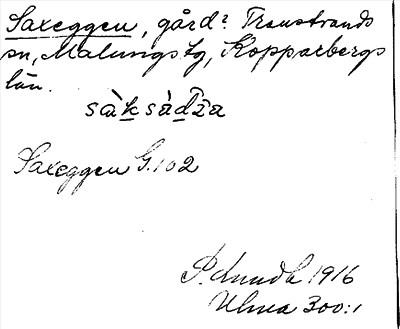 Saxeggen, gård? Transtrands
sn, Malungs tg, Kopparbergs
län.
sàksàdža
Saxeggen G.102
P. Lundh 1916
Ulma 300:1